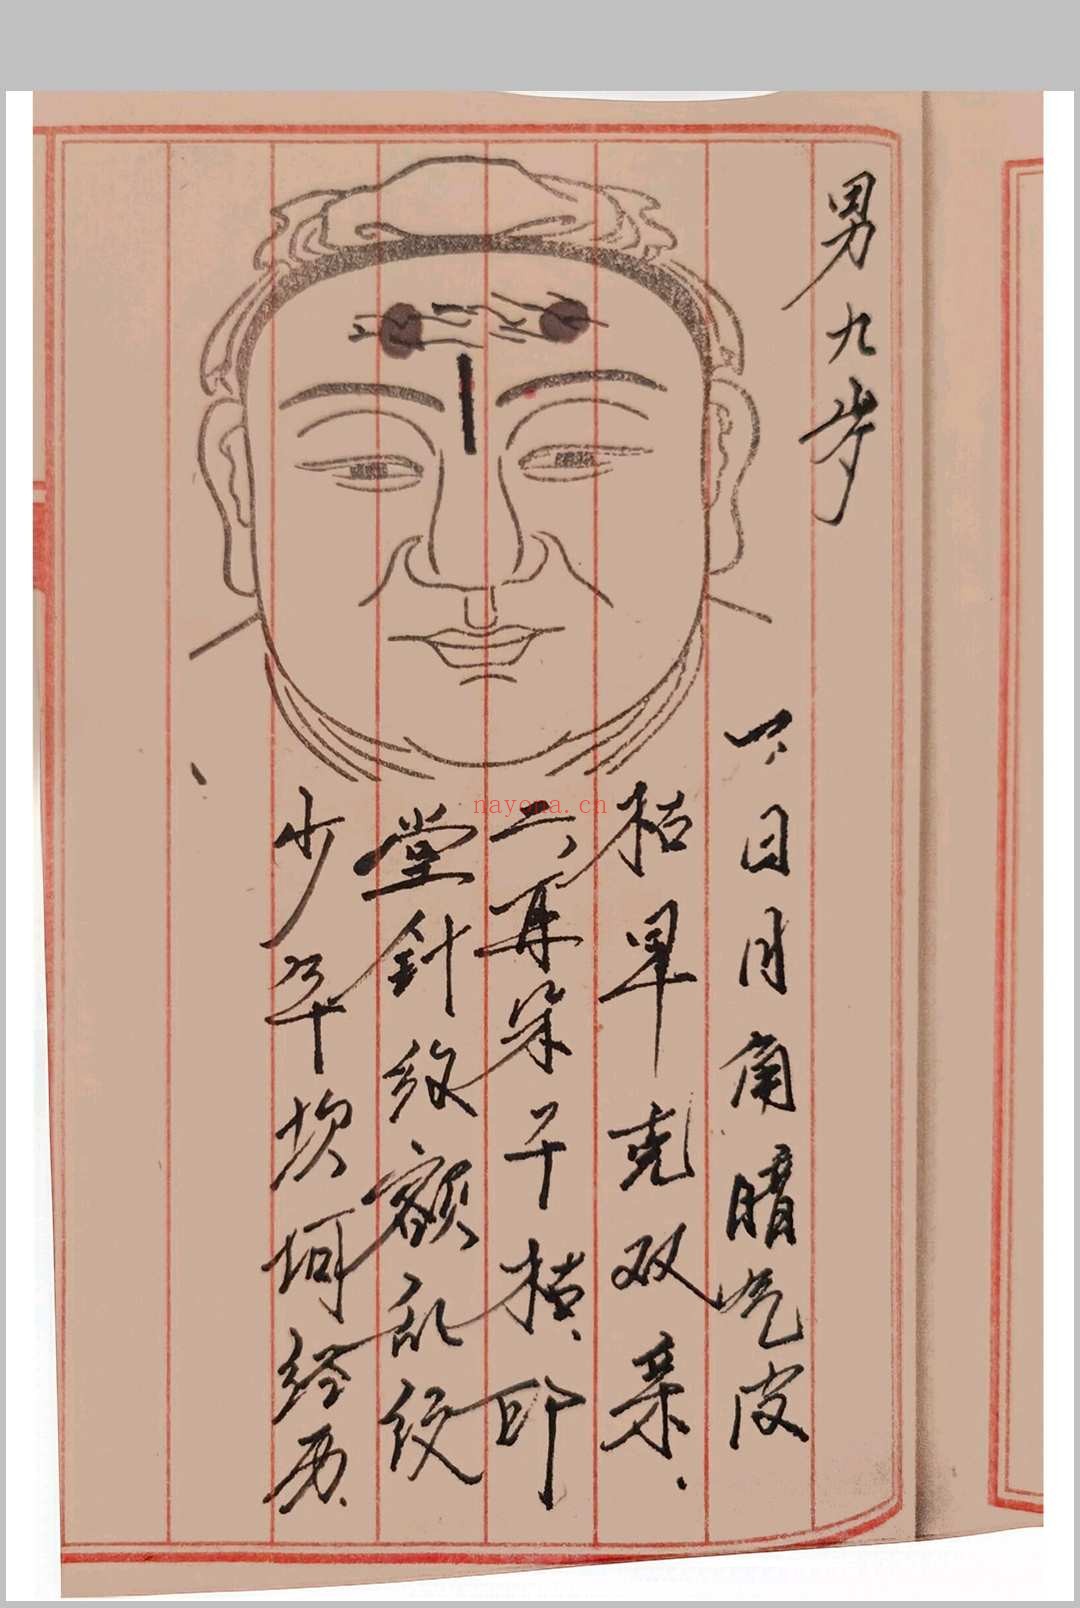 男九步
一、日月角暗气皮
枯早克双亲.
二、耳朵干枯、印
堂针纹额乱纹
少年坎坷经历.
nayona.cn